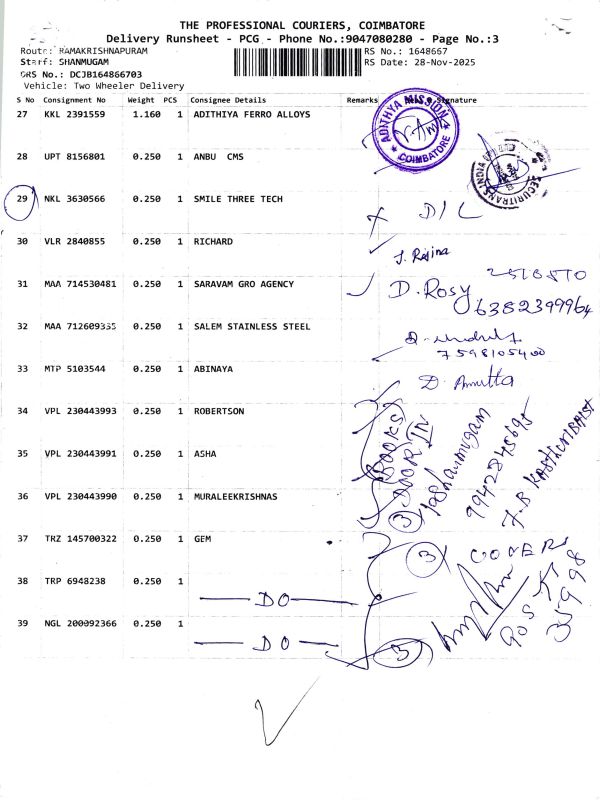 THE PROFESSIONAL COURIERS, COIMBATORE
Delivery Runsheet - PCG - Phone No.:9047080280 - Page No.:3
Route: RAMAKRISHNAPURAM RS No.: 1648667
Staff: SHANMUGAM RS Date: 28-Nov-2025
DRS No.: DCJB164866703
Vehicle: Two Wheeler Delivery
S No Consignment No Weight PCS Consignee Details Remarks Signature
27 KKL 2391559 1.160 1 ADITHIYA FERRO ALLOYS
ADITHYA MISSION
COIMBATORE
28 UPT 8156801 0.250 1 ANBU CMS
SECURITRANS INDIA
29 NKL 3630566 0.250 1 SMILE THREE TECH D/L
30 VLR 2840855 0.250 1 RICHARD J. Regina
31 MAA 714530481 0.250 1 SARAVAM GRO AGENCY D. Rosy
6382399964
32 MAA 712609335 0.250 1 SALEM STAINLESS STEEL
7598105400
33 MTP 5103544 0.250 1 ABINAYA
34 VPL 230443993 0.250 1 ROBERTSON
35 VPL 230443991 0.250 1 ASHA
36 VPL 230443990 0.250 1 MURALEEKRISHNAS
BOOKS
3 DOOR IN
Shanmugam
37 TRZ 145700322 0.250 1 GEM
3 COVERS
38 TRP 6948238 0.250 1
DO
39 NGL 200092366 0.250 1
DO
3
35998